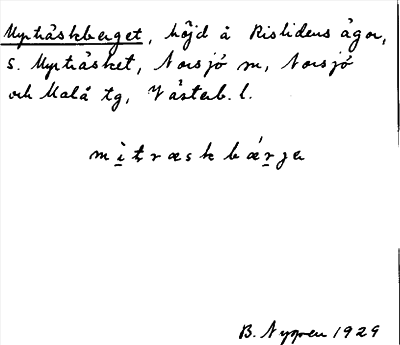 Myrträskberget, höjd å Rislidens ägor,
s. Myrträsket, Norsjö sn, Norsjö
och Malå tg, Västerb. l.
mìtræskbárja
B. Nygren 1929